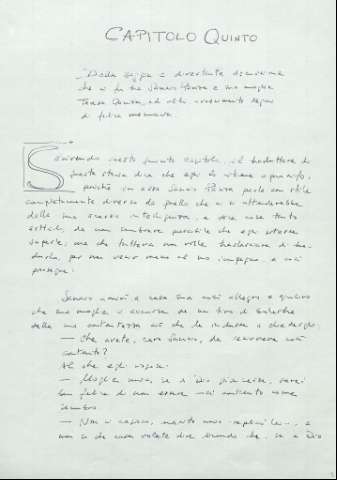 CAPITOLO QUINTO
Della saggia e divertente discussione
che vi fu tra Sancio Panza e sua moglie
Teresa Panza, ed altri avvenimenti degni
di felice memoria.
Scrivendo questo quinto capitolo, il traduttore di
questa storia dice che egli lo ritiene apocrifo,
perché in esso Sancio Panza parla con stile
completamente diverso da quello che ci si attenderebbe
dalla sua scarsa intelligenza, e dice cose tanto
sottili, da non sembrare possibile che egli potesse
saperle; ma che tuttavia non volle tralasciare di
per non venir meno al suo impegno, e così
prosegue:
Sancio arrivò a casa sua così allegro e giulivo
che sua moglie si accorse da un tiro di balestra
della sua contentezza così che fu indotta a chiedergli:
— Che avete, caro Sancio, da essere così
contento?
Al che egli rispose:
— Moglie mia, se a Dio piacesse, sarei
ben felice di non essere così contento come
sembro.
— Non vi capisco, marito mio - replicò -, e
non so che cosa vogliate dire dicendo che, se a Dio